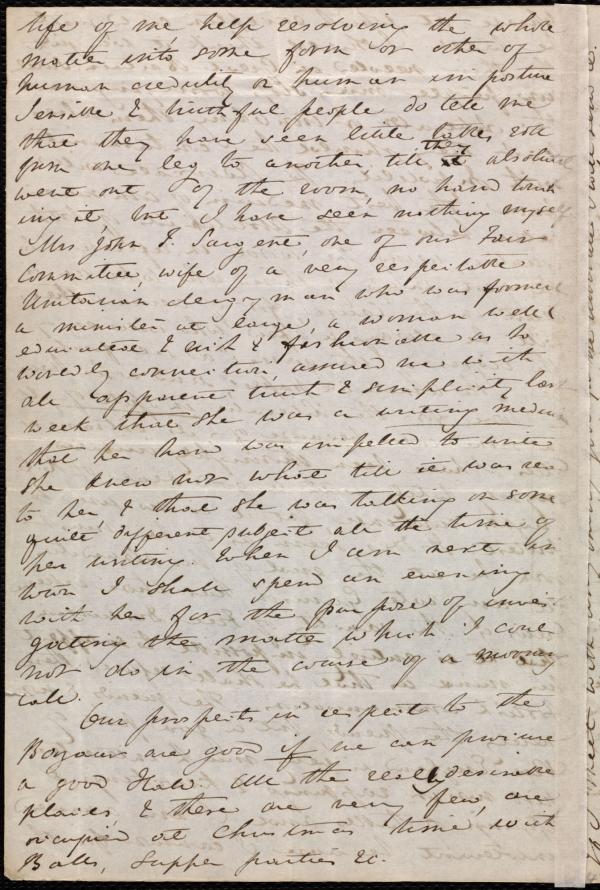 life of me, help resolving the whole
matter into some form or other of
human credulity or human imposture
Sensible & truthful people do tell me
that they have seen little tables roll
from one leg to another, till they absolutely
went out of the room, no hand touch
ing it, but I have seen nothing myself
Mrs John T. Sargent, one of our Fair
Committee, wife of a very respectable
Unitarian clergyman who was formerly
a minister at large, a woman well
educated & rich & fashionable as to
worldly connection, assured me with
all apparent truth & simplicity last
week that she was a writing medium
that her hand was impelled to write
she knew not what till it was read
to her, & that she was talking on some
quite different subject all the time of
her writing. When I am next in
town I shall spend an evening
with her for the purpose of investi
gating the matter which I could
not do in the course of a morning
call.
Our prospects in respect to the
Bazaar are good if we can procure
a good Hall. All the really desirable
places, & there are very few, are
occupied at Christmas time with
Balls, supper parties &c.